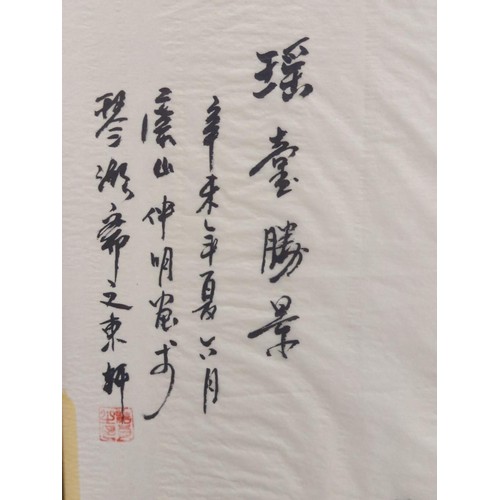 瑶臺勝景
辛未年夏六月
山仲明畫於
琴湖齋之東軒